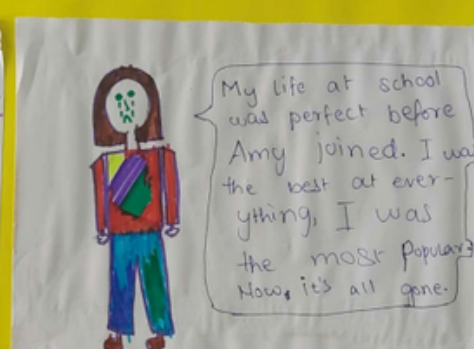 My life at school
was perfect before
Amy joined. I wa
the best at ever-
ything, I was
the most popular
Now, it's all gone.